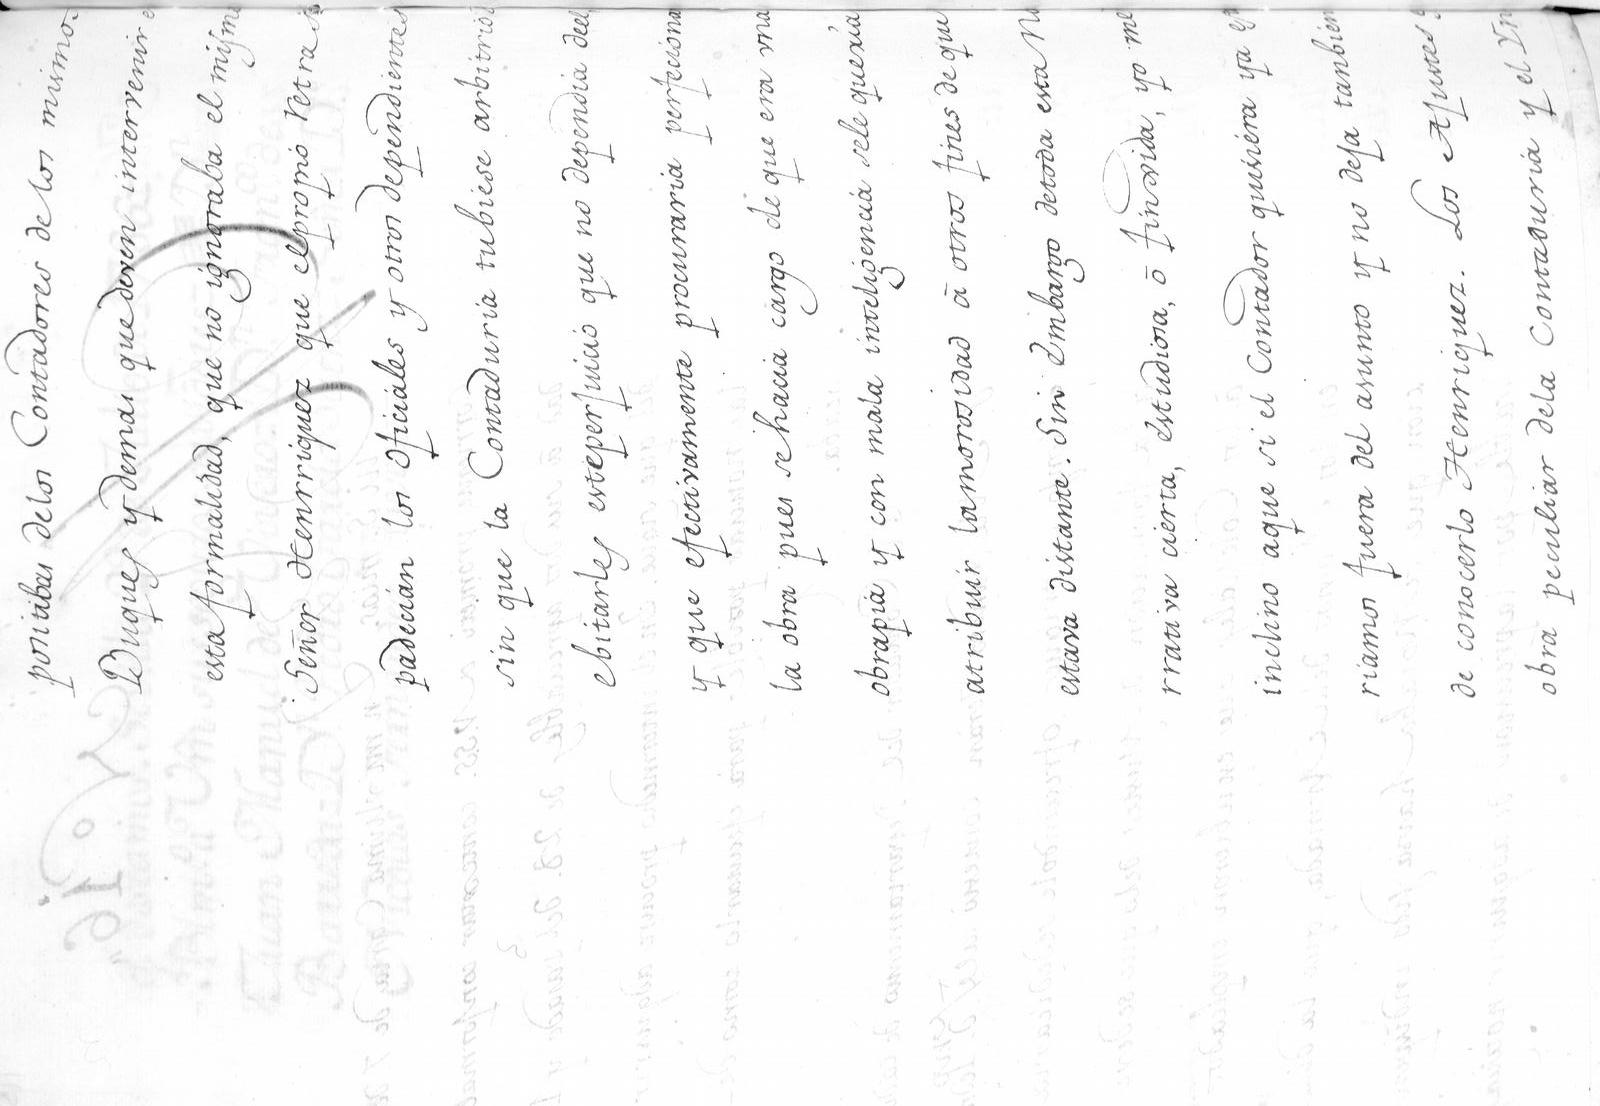 positadas delos Contadores de los mismos
Duques y demas que deven intervenir e
esta formalidad, que no ignoraba el mism
Señor Henrriquez que el propio retras
padecián los oficiales y otros dependientes
sin que la Contaduria tubiese arbitrio
ebitarles este perjuicio que no dependia deel
y que efectivamente procuraria perfeciona
la obra pues se hacia cargo de que era vna
obra pia y con mala inteligencia sele queria
atribuir la morosidad á otros fines de que
estava distante. Sin Embargo detoda esta Na
rrativa cierta, estudiosa, ó finxida, yo me
inclino aque si el Contador quisiera ya es
riamos fuera del asunto y no deja tanbien
de conocerlo Henriquez. Los Ajustes
obra peculiar dela Contaduria y el Yn
16